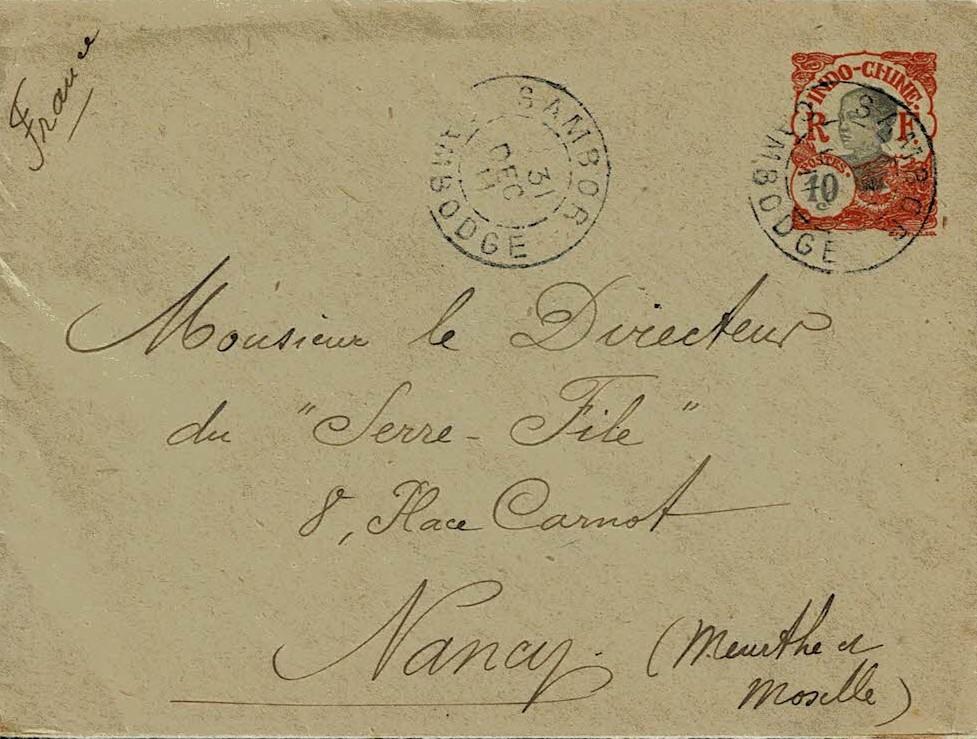 France
SAMBOR
31
DEC
11
CAMBODGE
INDO-CHINE
R F
POSTES
10
SAMBOR
CAMBODGE
Monsieur le Directeur
du "Serre-File"
8, Place Carnot
Nancy. (Meurthe et
Moselle)